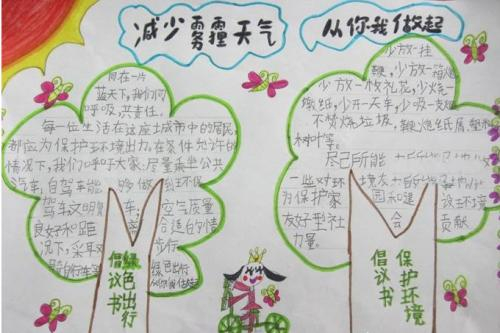 减少雾霾天气 从你我做起
同在一片
蓝天下,我们同
呼吸,共责任。
每一位生活在这座城市中的居民,
都应为保护环境出力。在条件允许的
情况下,我们呼吁大家:尽量乘坐公共
汽车,自驾车能够做到环保
驾车文明
良好和距
况下,采
车; 空气质量
合适的情
步行
绿色出行
绿色出行
倡议书
少放一挂
鞭,少放一箱炮
少放一枚礼花,少烧一
烟纸,少开一天车,少吸一支烟
不焚烧垃圾,
树叶等。
尽己所能
一些对环境友
为保护家园和
友好型社会
力量
设环境
贡献
保护环境
倡议书